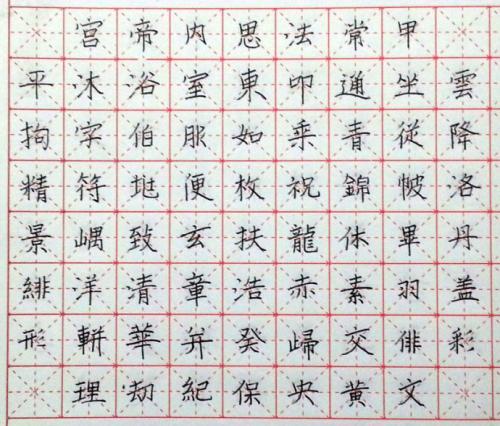 宮帝内思法常甲
平沐浴室東叩通坐雲
拘字伯服如乘青從降
精符地便枚祝錦帔洛
景嵎致玄扶龍休畢丹
緋洋清章浩赤素羽蓋
形輧華并癸歸交俳彩
理劫紀保央黃文